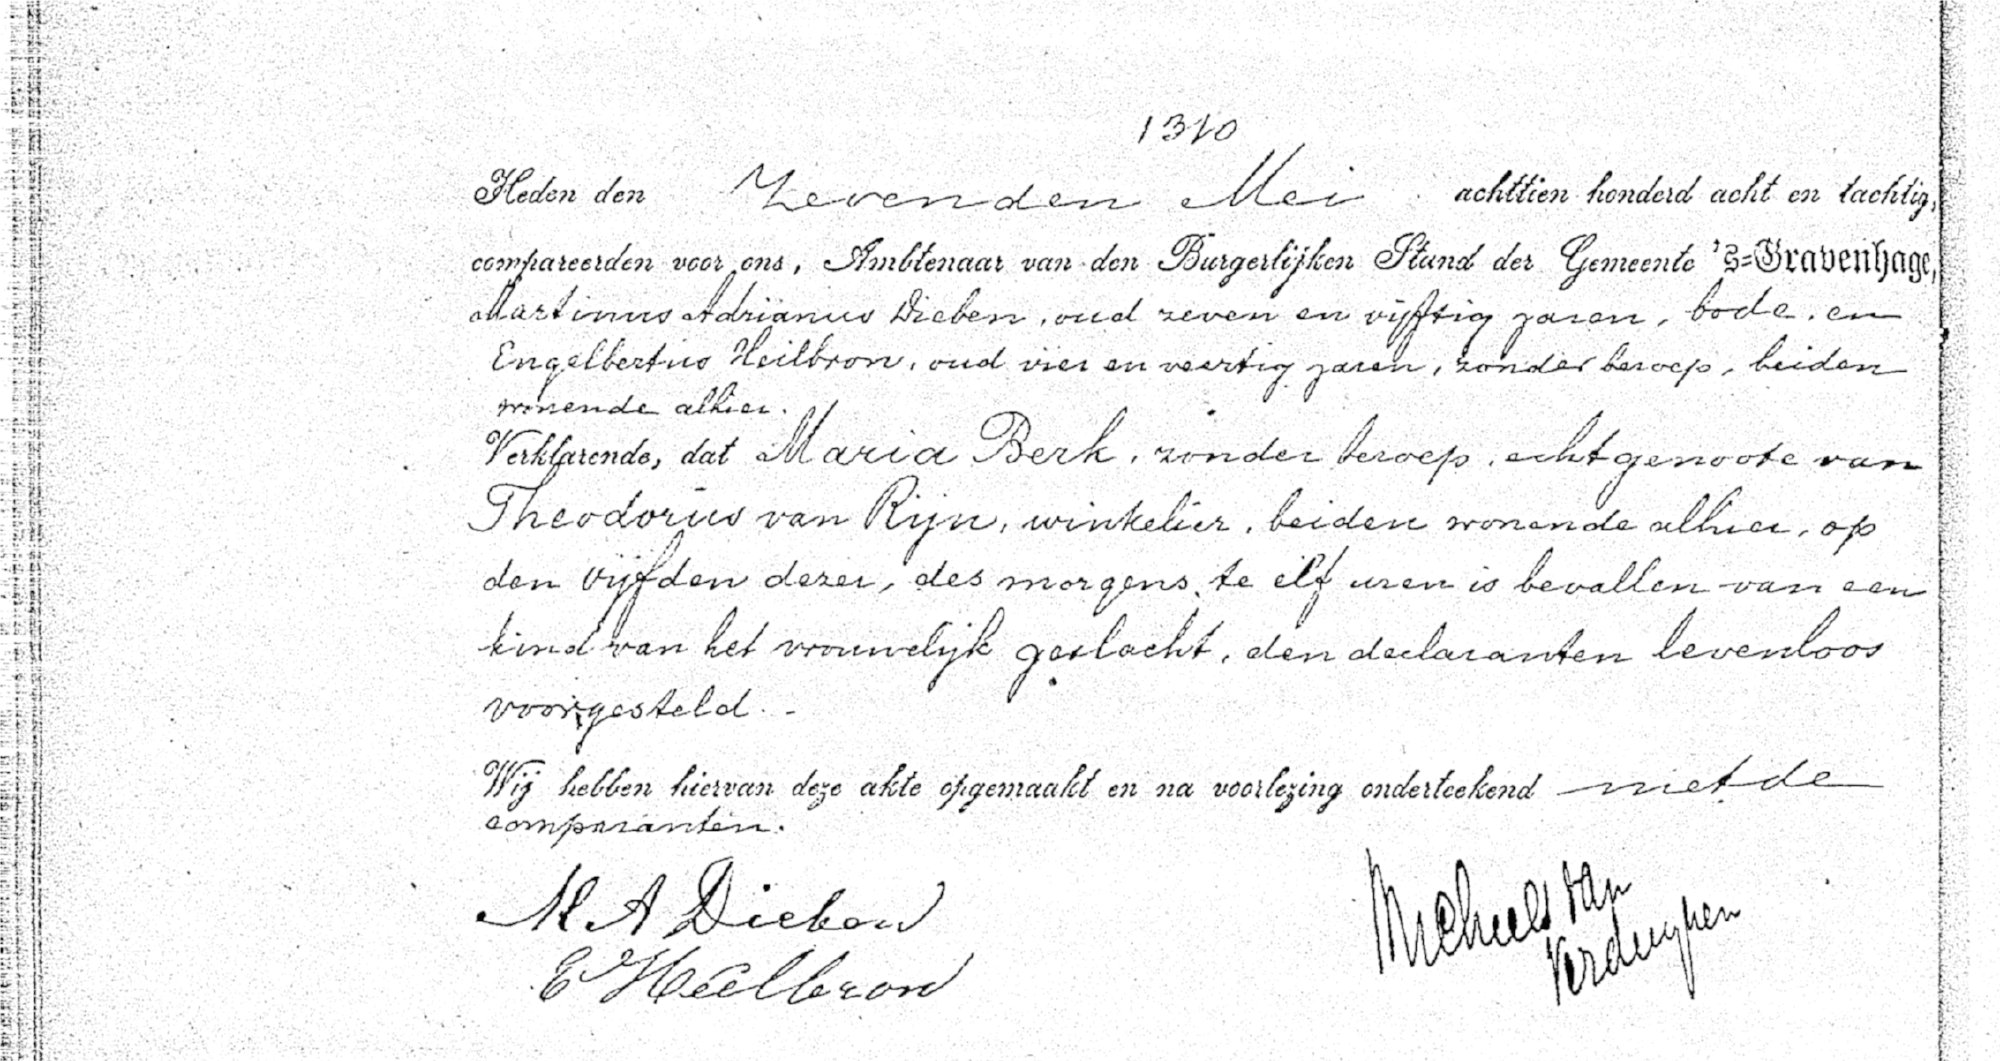 1310
Heden den Zevenden Mei achttien honderd acht en tachtig,
compareerden voor ons, Ambtenaar van den Burgerlijken Stand der Gemeente 's=Gravenhage,
Martinus Adrianus Dieben, oud zeven en vijftig jaren, bode, en
Engelbertus Heilbron, oud vier en veertig jaren, zonder beroep, beiden
wonende alhier.
Verklarende, dat Maria Berk, zonder beroep, echtgenoote van
Theodorus van Rijn, winkelier, beiden wonende alhier, op
den vijfden dezer, des morgens te elf uren is bevallen van een
kind van het vrouwelijk geslacht, den declaranten levenloos
voorgesteld. -
Wij hebben hiervan deze akte opgemaakt en na voorlezing onderteekend met de
comparanten.
M A Dieben
E Heilbron
Michiels van
Verduynen